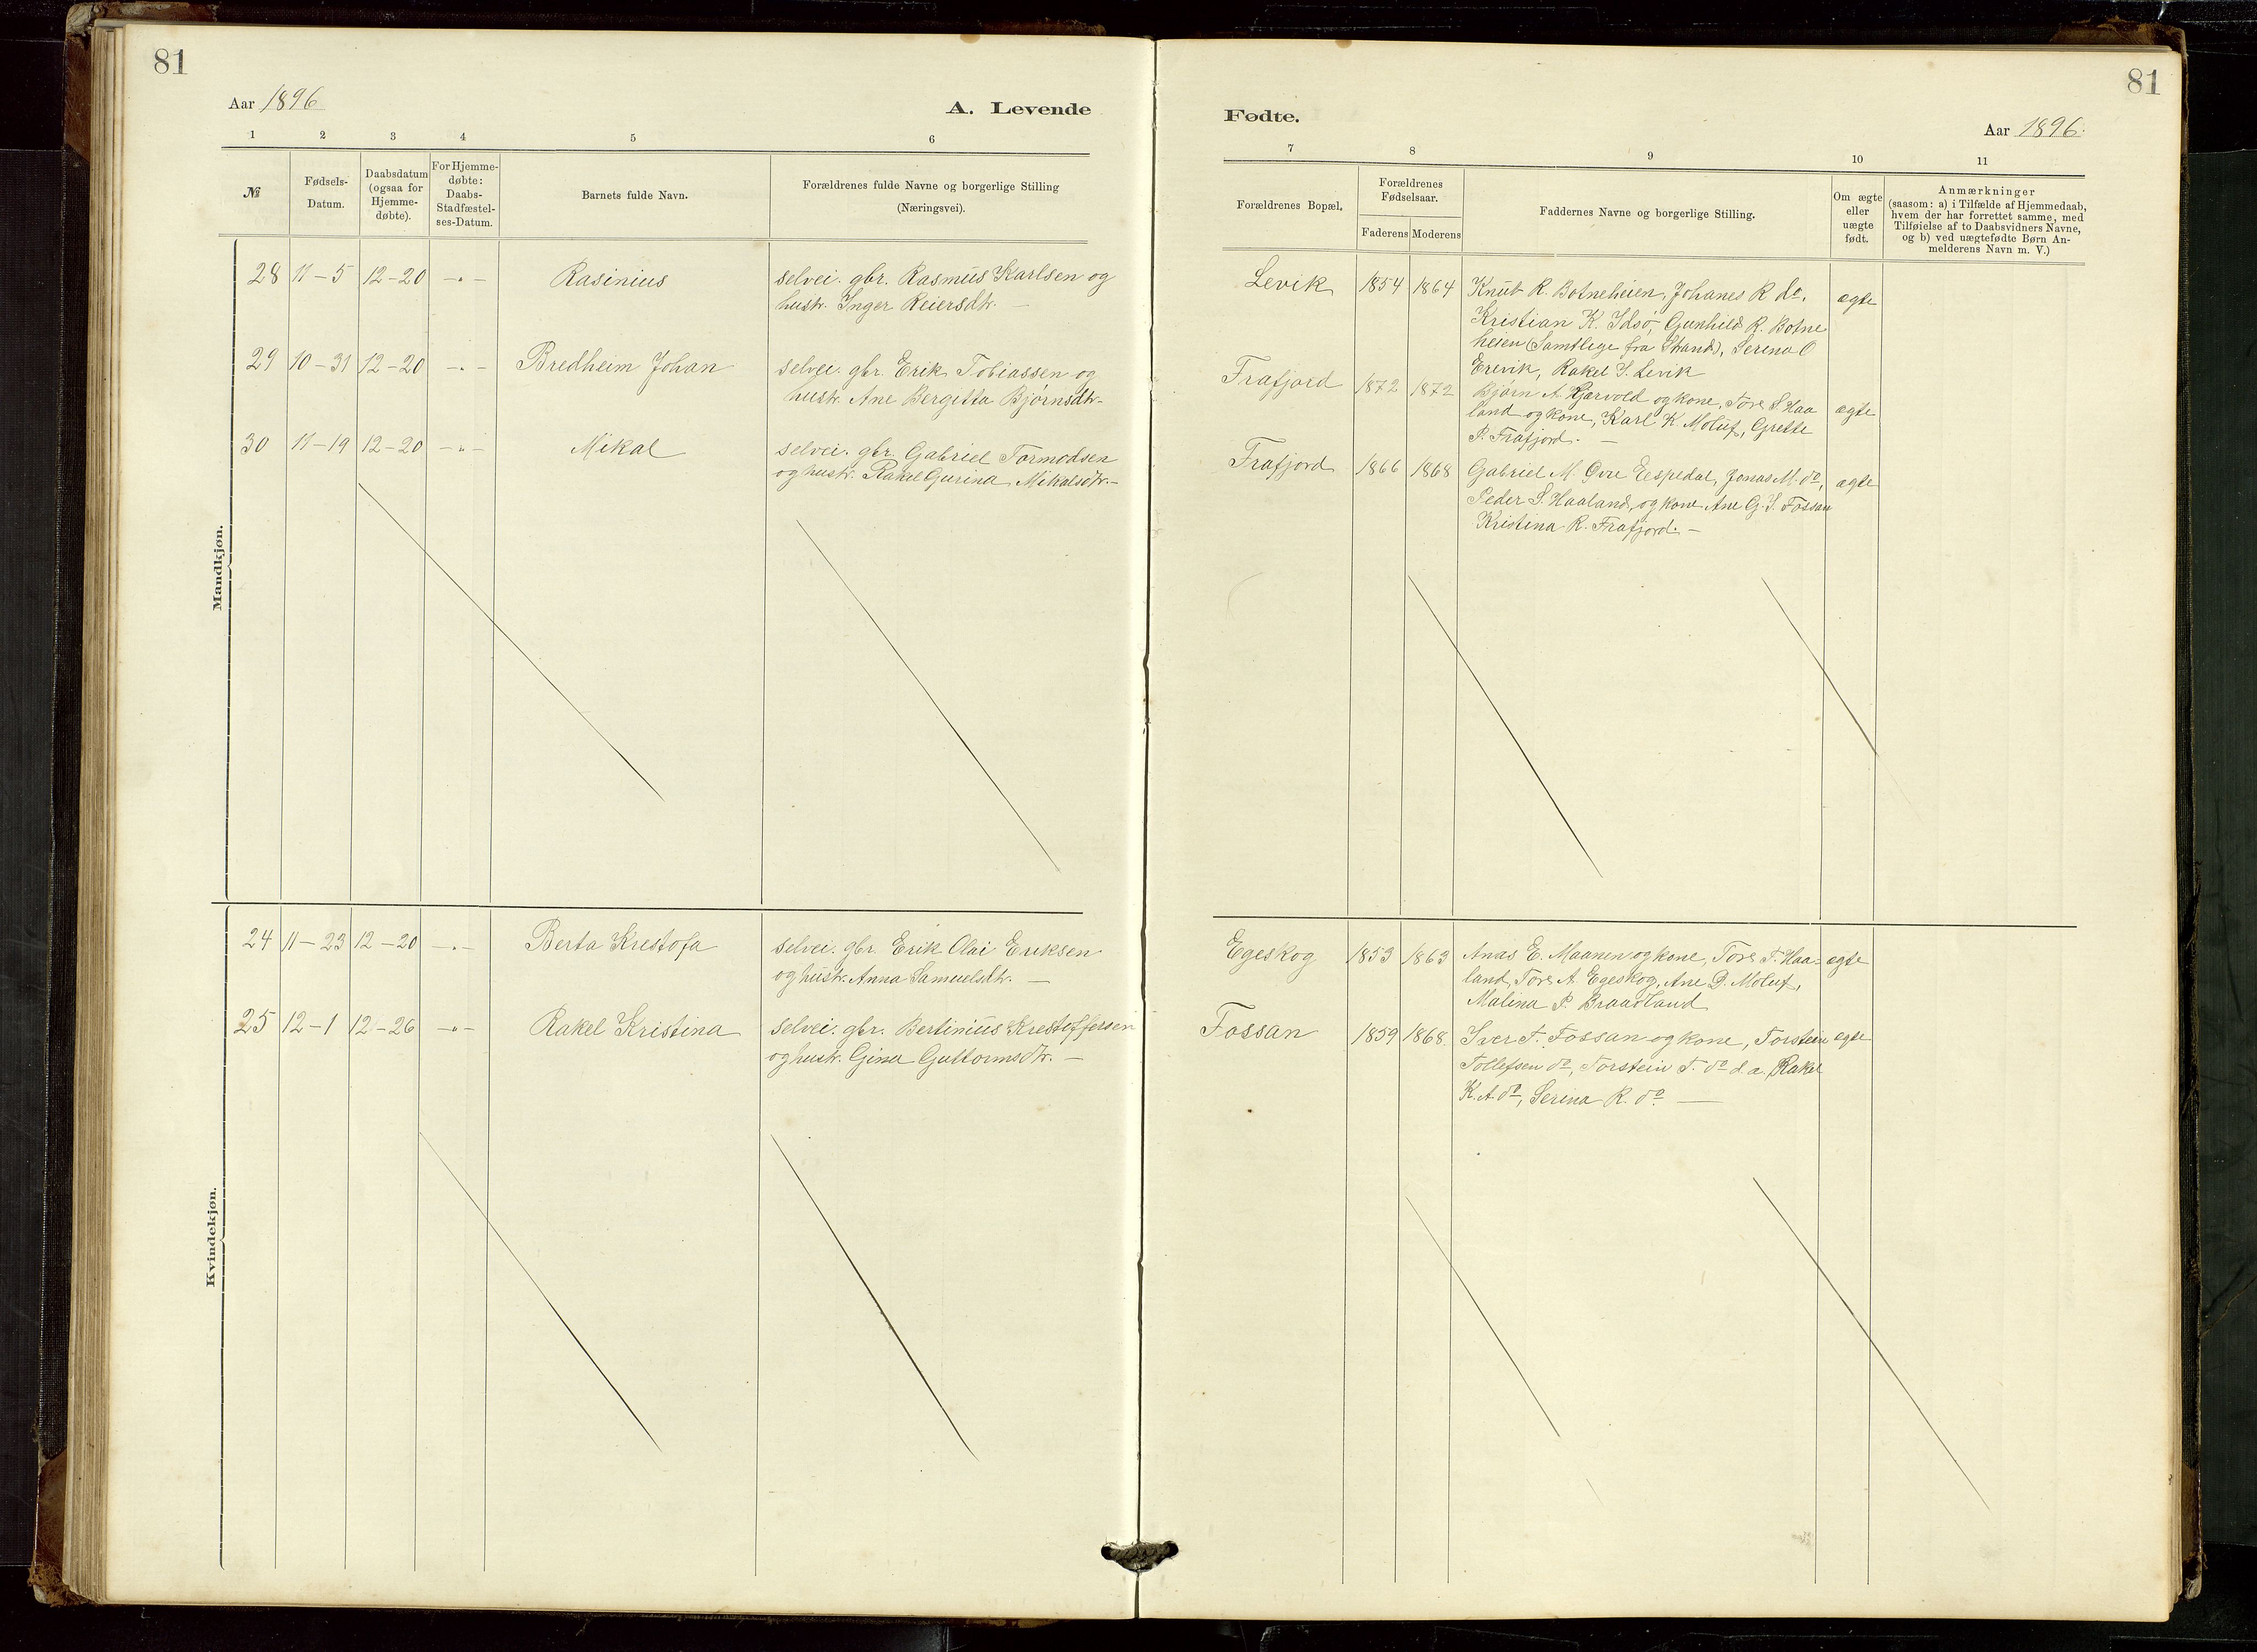 81
Aar 1896
A. Levende
1 2 3 4 5 6
№
Fødsels-
Datum.
Daabsdatum
(ogsaa for
Hjemme-
døbte).
For Hjemme-
døbte:
Daabs-
Stadfæstel-
ses-Datum.
Barnets fulde Navn.
Forældrenes fulde Navne og borgerlige Stilling
(Næringsvei).
Mandkjøn.
28 11-5 12-20 -"- Rasinius selvei. gbr. Rasmus Karlsen og
hustr. Inger Reiersdtr. —
29 10-31 12-20 -"- Bredheim Johan selvei. gbr. Erik Tobiassen og
hustr. Ane Bergitta Bjørnsdtr.-
30 11-19 12-20 -"- Mikal selvei. gbr. Gabriel Tormodsen
og hustr. Rakel Gurina Mikalsdtr.-
Kvindekjøn.
24 11-23 12-20 -"- Berta Krestofa selvei. gbr. Erik Olai Eriksen
og hustr. Anna Samuelsdtr. —
25 12-1 12-26 -"- Rakel Kristina selvei. gbr. Bertinius Kristoffersen
og hustr. Gina Guttormsdtr. —
81
Fødte.
Aar 1896.
7 8 9 10 11
Forældrenes Bopæl.
Forældrenes
Fødselsaar.
Faderens Moderens
Faddernes Navne og borgerlige Stilling.
Om ægte
eller
uægte
født.
Anmærkninger
(saasom: a) i Tilfælde af Hjemmedaab,
hvem der har forrettet samme, med
Tilføielse af to Daabsvidners Navne,
og b) ved uægtefødte Børn An-
melderens Navn m. V.)
Levik 1854 1864 Knut R. Botneheien, Johanes R do, ægte
Kristian K. Idsø, Gunhild R. Botne
heien (Samtlige fra Strand), Serina O
Erevik, Rakel I. Levik
Frafjord 1872 1872 Bjørn A. Kjærvold og kone, Tore S Haa ægte
land og kone, Karl K Moluf, Grette
P. Frafjord. —
Frafjord 1866 1868 Gabriel M Øvre Eespedal, Jonas M. do, ægte
Peder S. Haaland og kone Ane G. I. Fossan
Kristina R. Frafjord. —
Egeskog 1853 1863 Anas E. Maanen og kone, Tore T. Haa- ægte
land, Tore A. Egeskog, Ane D. Moluf,
Malina P. Braadland
Fossan 1859 1868. Iver T. Fossan og kone, Torstein ægte
Tollefsen do, Torstein T. do d. a. Rakel
K. A. do, Serina R. do. —